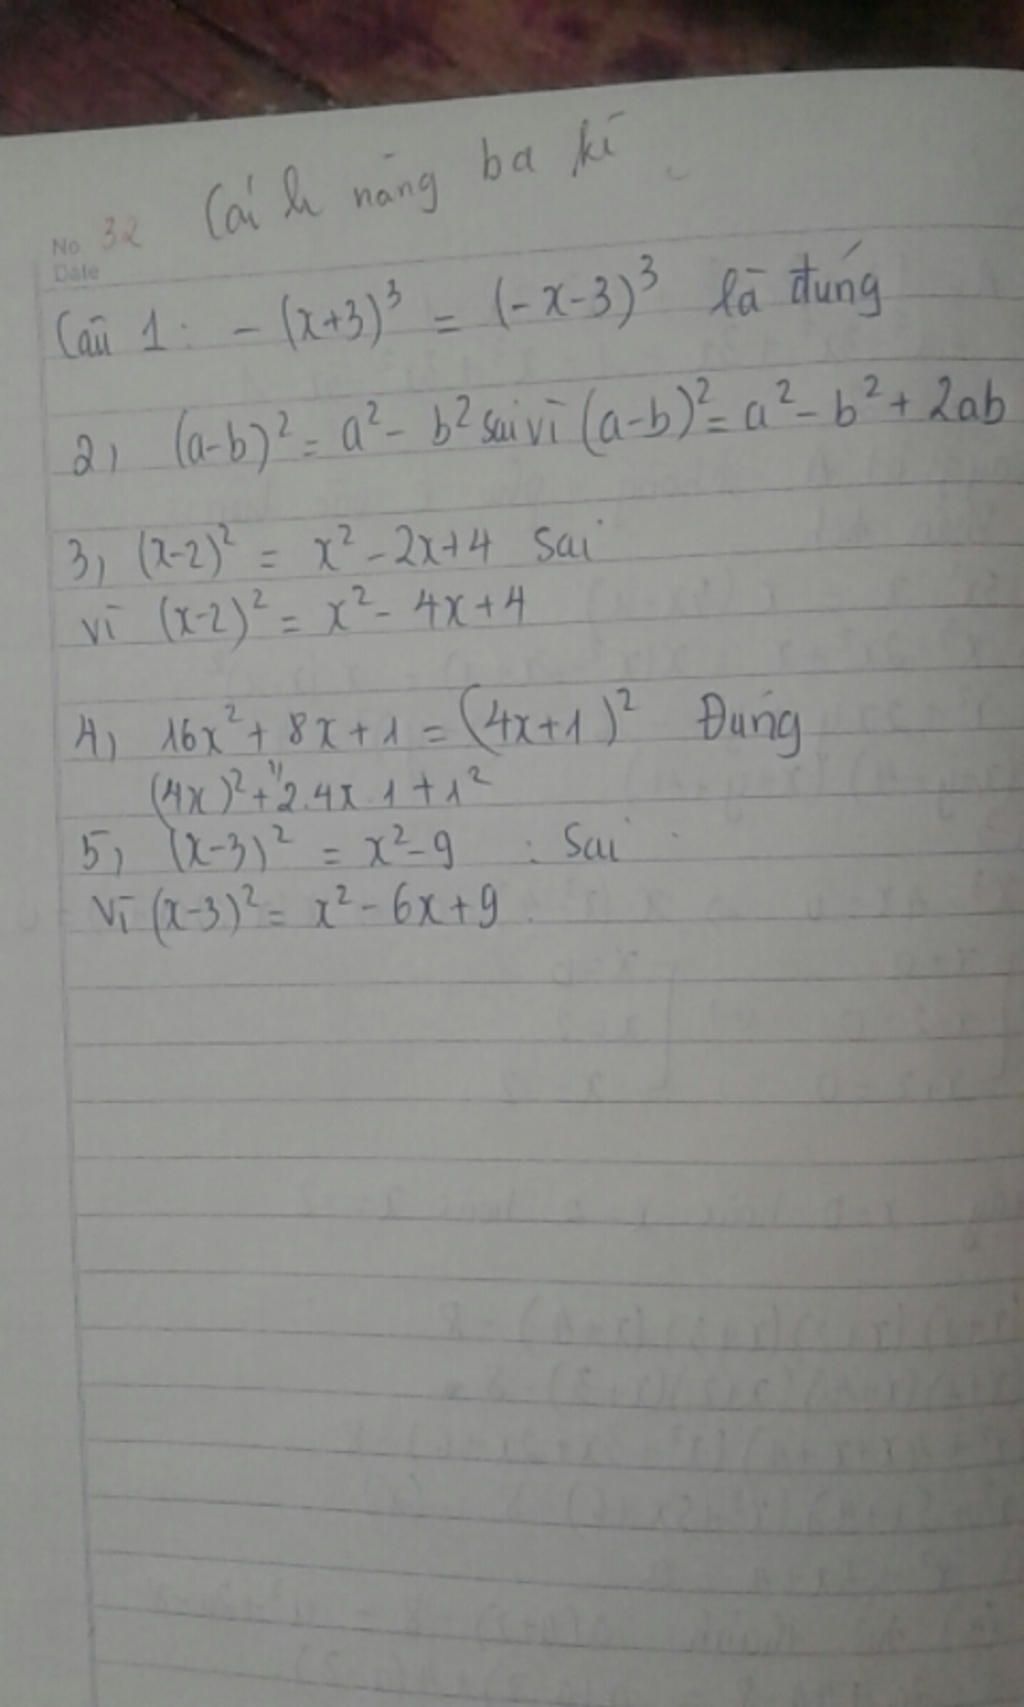 ba kī
No. 32
Date
Câu 1: - (x+3)³ = (-x-3)³ là đúng
2, (a-b)² = a² - b² sai vì (a-b)² = a² - b² + 2ab
3, (x-2)² = x² - 2x+4 Sai
vì (x-2)² = x² - 4x+4
4, 16x² + 8x+1 = (4x+1)² Đúng
(4x)² + 2.4x 1 + 1²
5, (x-3)² = x²-9 : Sai
Vì (x-3)² = x² - 6x+9